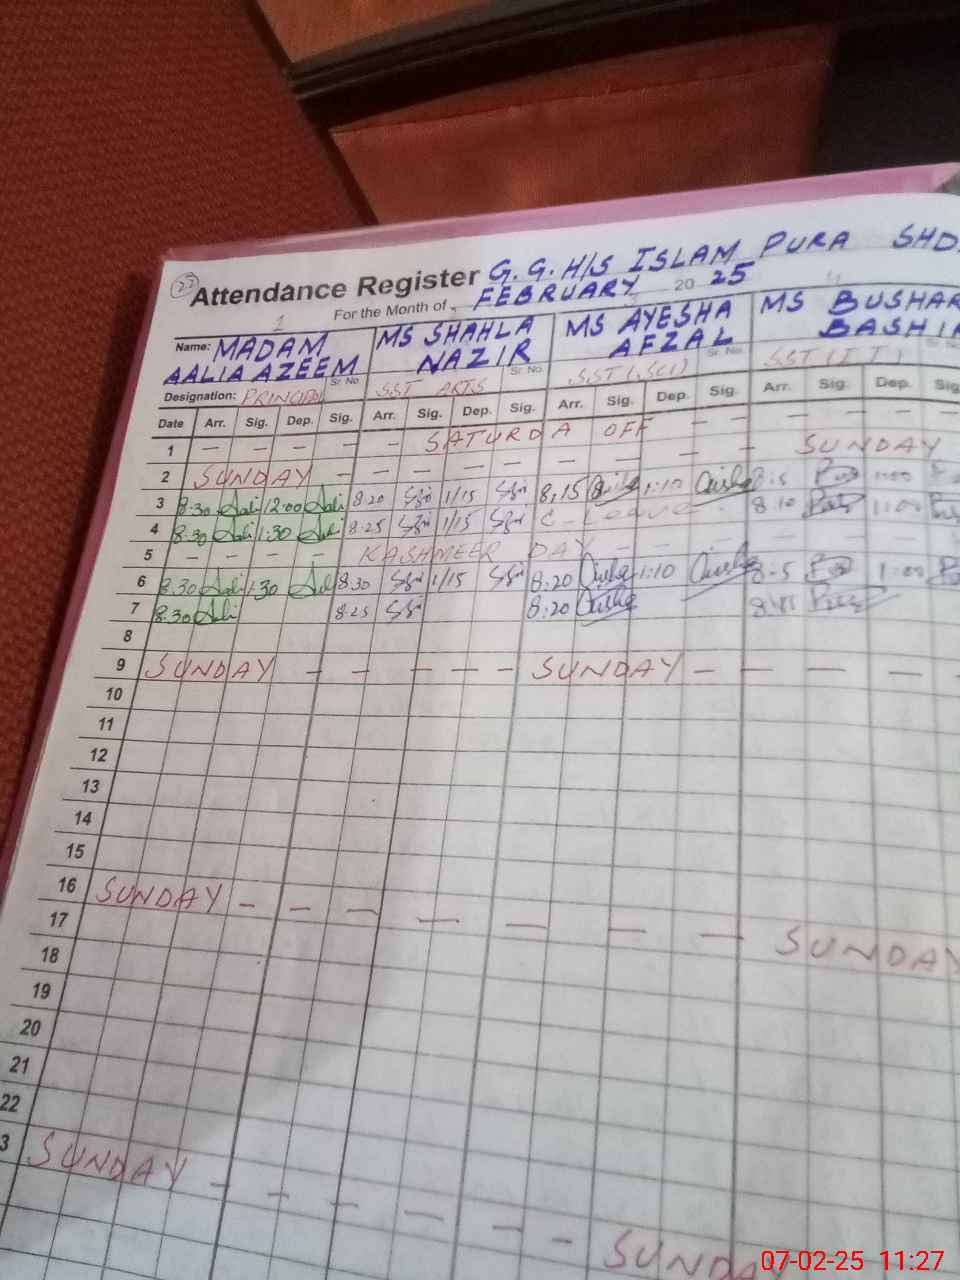 22
Attendance Register G.G.H/S ISLAM PURA SHD
For the Month of FEBRUARY 20 25
1
Name: MADAM AALIA AZEEM MS SHAHLA NAZIR MS AYESHA AFZAL MS BUSHAR BASHI
Sr No. Sr No. Sr No. Sr No.
Designation: PRINCIPAL SST ARTS SST (SCI) SST (I T)
Date Arr. Sig. Dep. Sig. Arr. Sig. Dep. Sig. Arr. Sig. Dep. Sig. Arr. Sig. Dep. Sig.
1 – – – – – SATURDA OFF – – SUNDAY
2 SUNDAY – – – – – –
3 8:30 12:00 8:20 1/15 8:15 1:10 8:5 1:00
4 8:30 1:30 8:25 1/15 C-Leave 8:10 1:00
5 – – – – KASHMEER DAY
6 8:30 1:30 8:30 1/15 8:20 1:10 8:5 1:00
7 8:30 8:25 8:20
8
9 SUNDAY – – – – – SUNDAY – – – –
10
11
12
13
14
15
16 SUNDAY – – – – – – – SUNDAY
17
18
19
20
21
22
3 SUNDAY – – – – – – SUNDAY
07-02-25 11:27